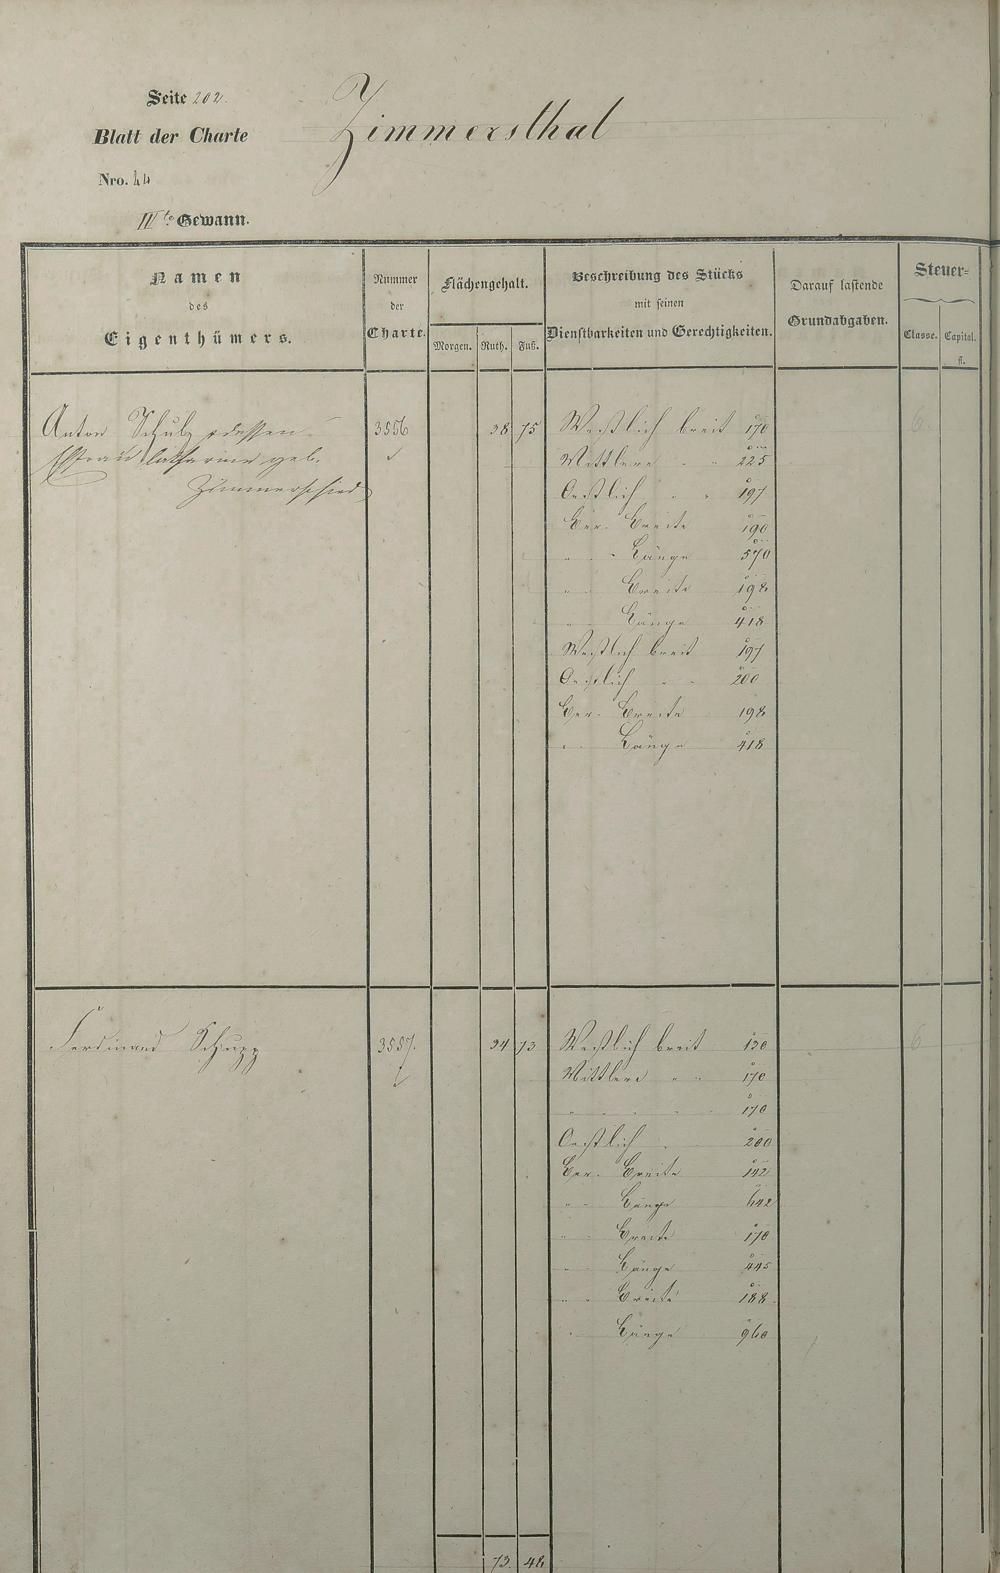 Seite 202.
Zimmersthal
Blatt der Charte
Nro. 44
IVte Gewann.
Namen
des
Eigenthümers.
Nummer
der
Charte.
Flächengehalt.
Morgen. Ruth. Fuß.
Beschreibung des Stücks
mit seinen
Dienstbarkeiten und Gerechtigkeiten.
Darauf lastende
Grundabgaben.
Steuer-
Classe. Capital.
fl.
Anton Schulz dessen 3556 38 75 Westlich breit 170 6
Ehfrau Catharine geb. Mittlere " " 225
Zimmerschied Oestlich " " 197
Ger. Breite 190
" " Länge 570
" " Breite 198
" " Länge 418
Westlich breit 197
Oestlich " " 200
Ger. Breite 198
" " Länge 418
Ferdinand Schupp 3557. 34 73 Westlich breit 130 6
Mittlere " " 170
" " " 170
Oestlich " 200
Ger. Breite 142
" " Länge 642
" " Breite 170
" " Länge 445
" " Breite 188
" Länge 960
73. 48